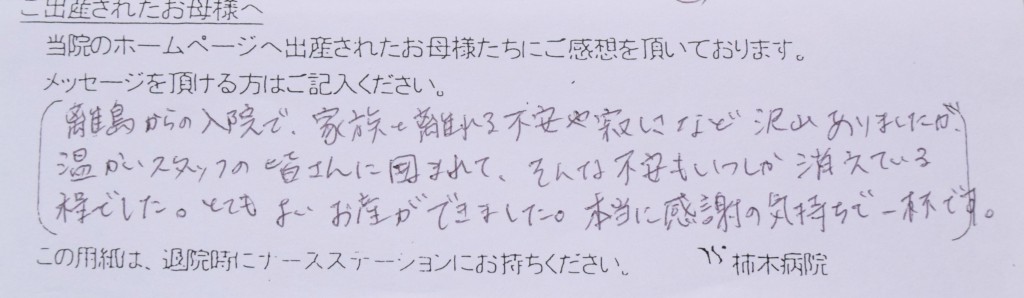 ご出産されたお母様へ
当院のホームページへ出産されたお母様たちにご感想を頂いております。
メッセージを頂ける方はご記入ください。
離島からの入院で、家族と離れる不安や寂しさなど沢山ありましたが、
温かいスタッフの皆さんに囲まれて、そんな不安もいつしか消えている
程でした。とてもよいお産ができました。本当に感謝の気持ちで一杯です。
この用紙は、退院時にナースステーションにお持ちください。 柿木病院